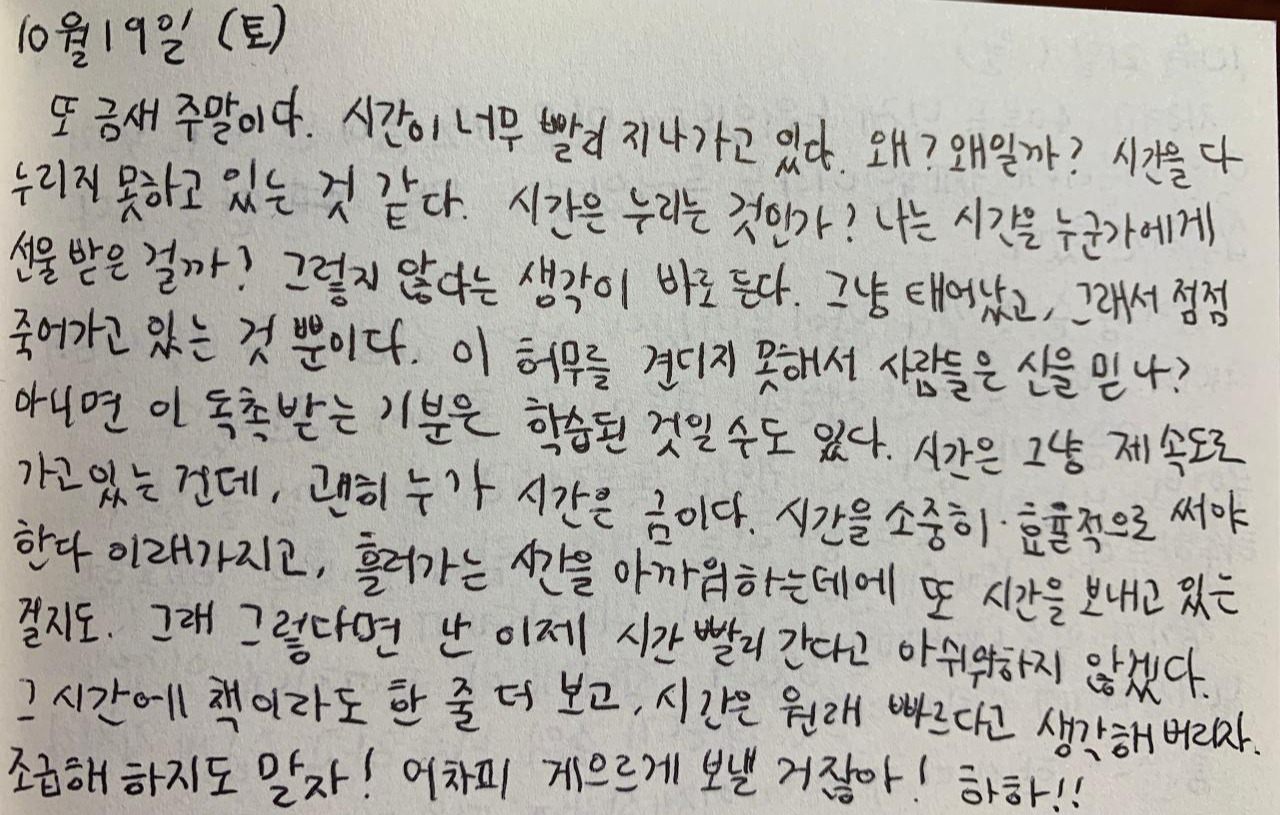 10월 19일 (토)
또 금새 주말이다. 시간이 너무 빨리 지나가고 있다. 왜? 왜일까? 시간을 다
누리지 못하고 있는 것 같다. 시간은 누리는 것인가? 나는 시간을 누군가에게
선물 받은 걸까? 그렇지 않다는 생각이 바로 든다. 그냥 태어났고, 그래서 점점
죽어가고 있는 것 뿐이다. 이 허무를 견디지 못해서 사람들은 신을 믿나?
아니면 이 독촉받는 기분은 학습된 것일 수도 있다. 시간은 그냥 제 속도로
가고 있는 건데, 괜히 누가 시간은 금이다. 시간을 소중히·효율적으로 써야
한다 이래가지고, 흘러가는 시간을 아까워하는데에 또 시간을 보내고 있는
걸지도. 그래 그렇다면 난 이제 시간 빨리 간다고 아쉬워하지 않겠다.
그 시간에 책이라도 한 줄 더 보고, 시간은 원래 빠르다고 생각해 버리자.
조급해 하지도 말자! 어차피 게으르게 보낼 거잖아! 하하!!